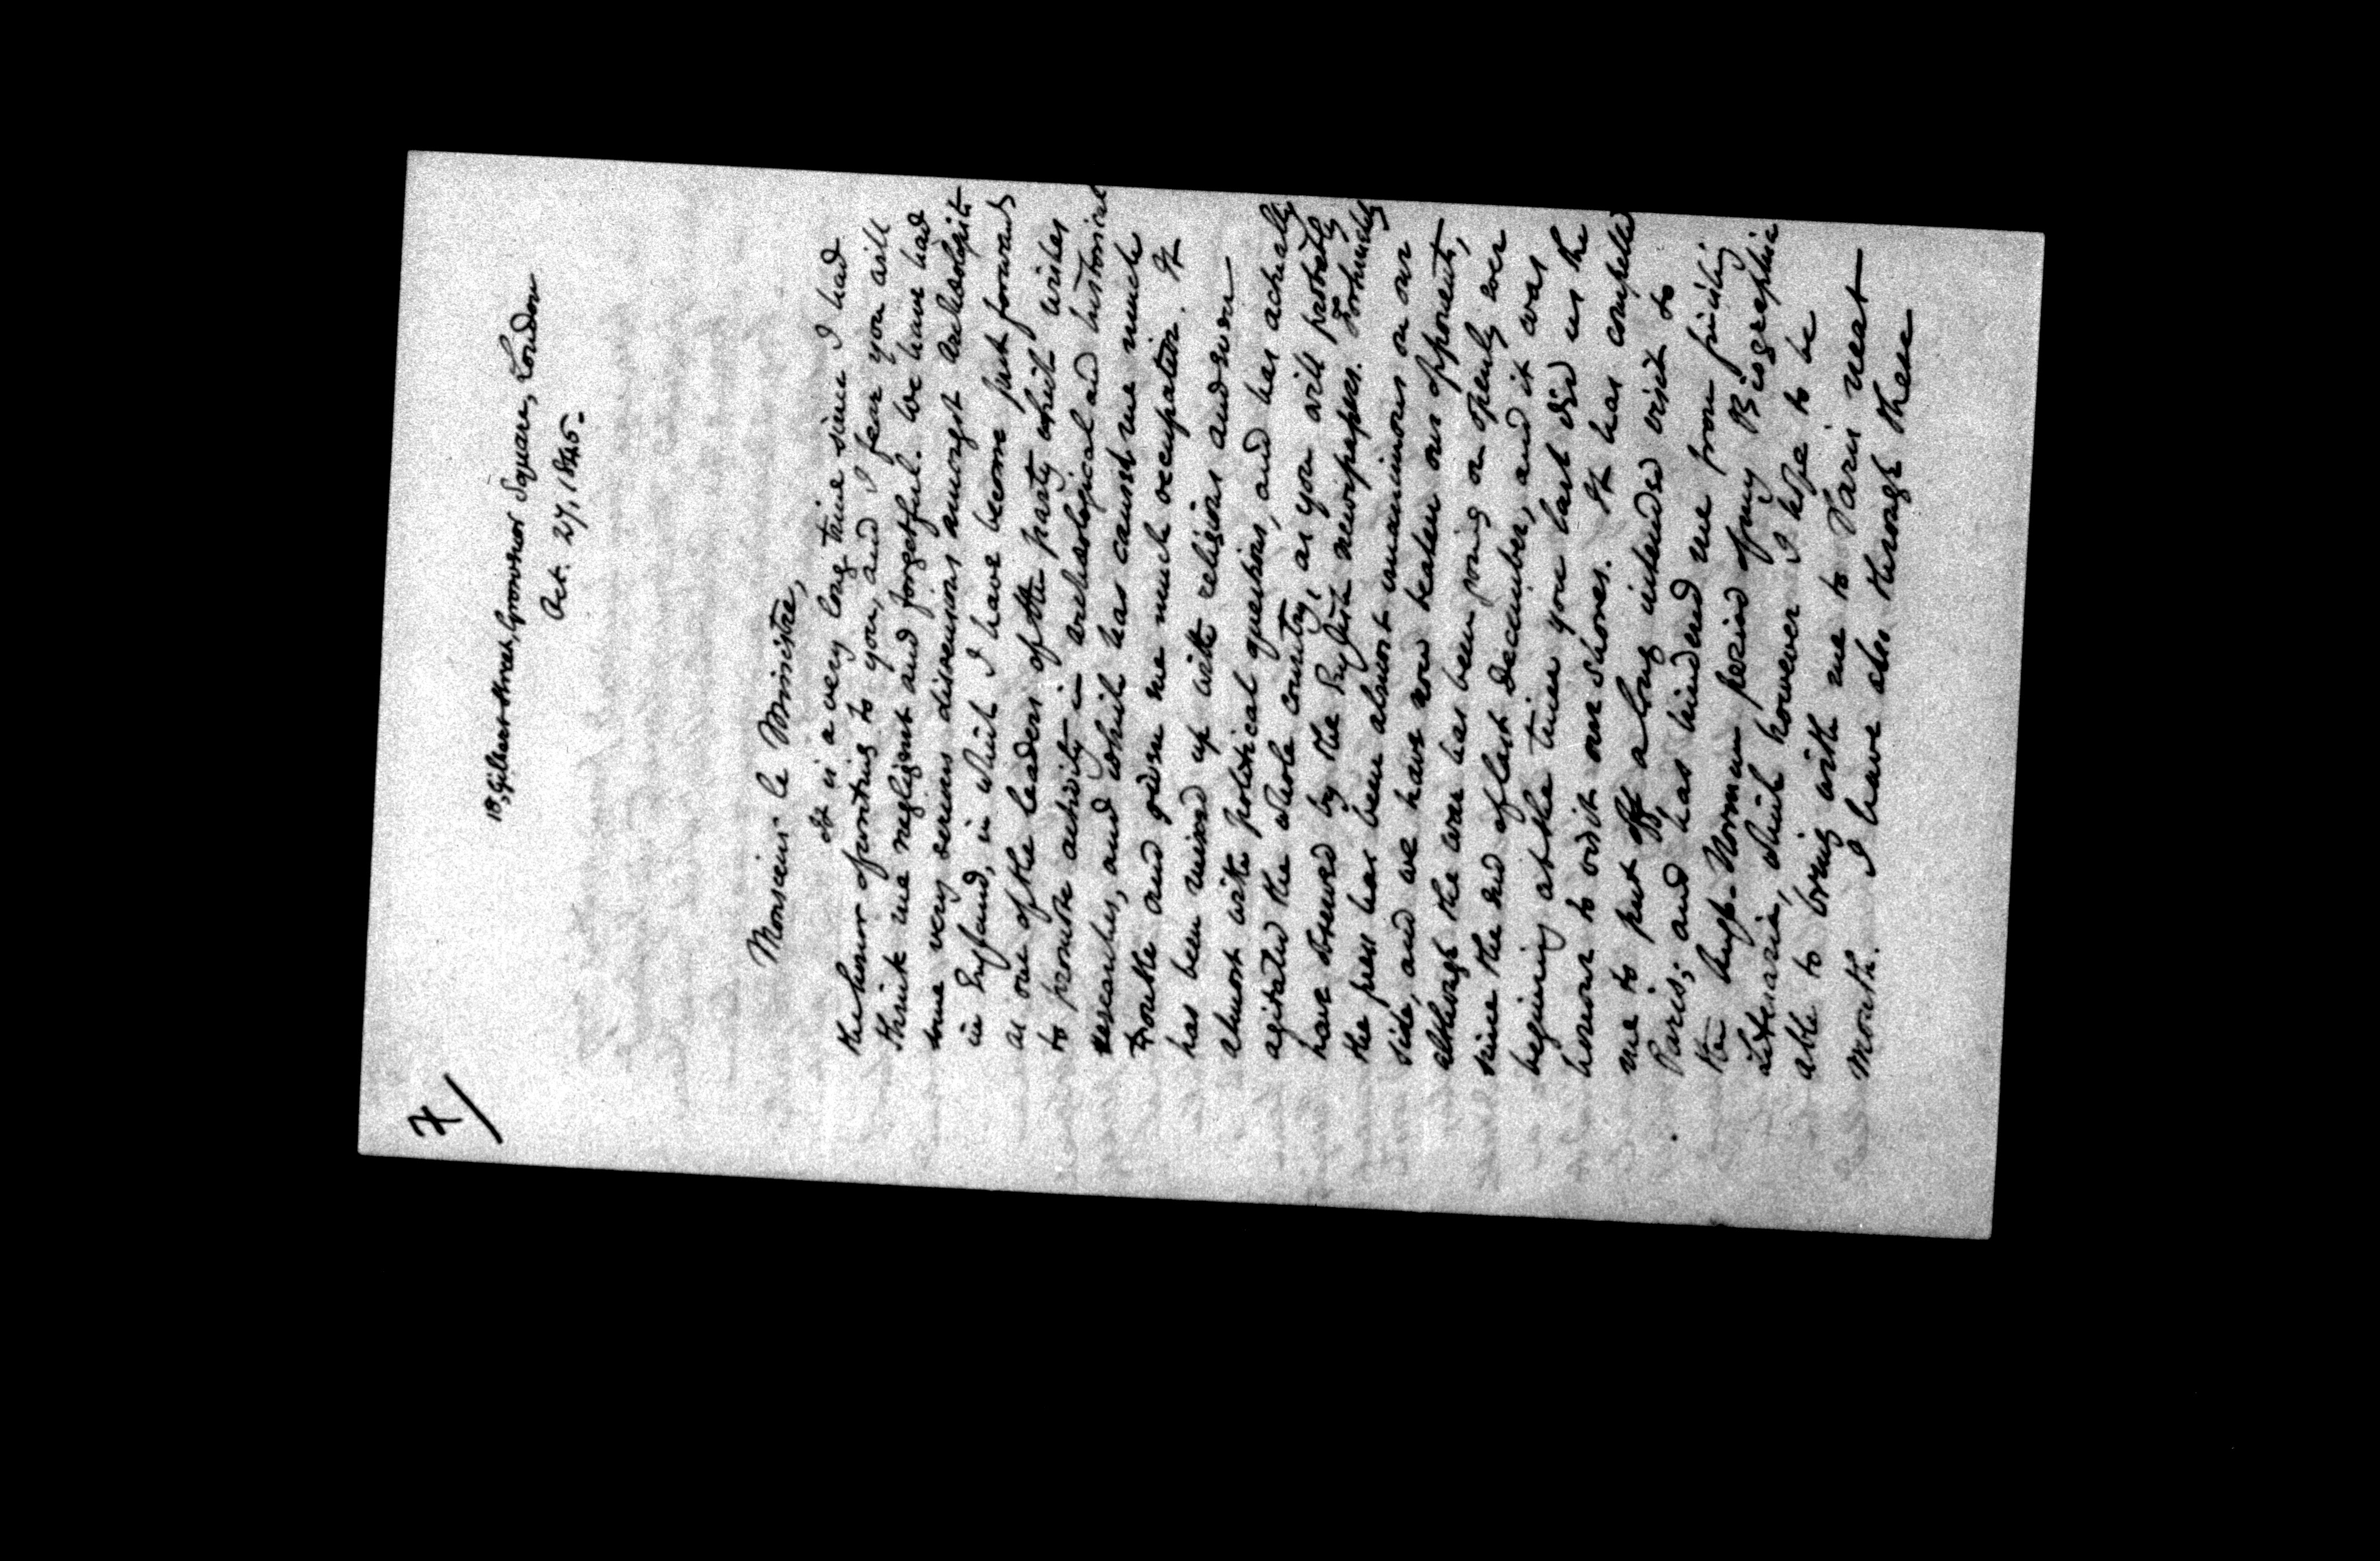 7/
18, Gilbert Street, Grosvenor Square, London
Oct. 27, 1845.
Monsieur le Ministre,
It is a very long time since I had
the honor of writing to you, and I fear you will
think me negligent and forgetful. We have had
some very serious dissensions amongst Archæologists
in England, in which I have become put forwards
as one of the leaders of the party which wishes
to promote activity in archæological and historical
researches, and which has caused me much
trouble and given me much occupation. It
has been mixed up with religious and even
almost with political questions, and has actually
agitated the whole country, as you will probably
have observed by the English newspapers. Fortunately
the press has been almost unanimous on our
side, and we have now beaten our opponents,
although the war has been going on openly ever
since the end of last December, and it was
beginning at the time you last did us the
honour to visit our shores. It has compelled
me to put off a long intended visit to
Paris; and has hindered me from finishing
the Anglo-Norman period of my Biographia
Literaria, which however I hope to be
able to bring with me to Paris next
month. I have also through these